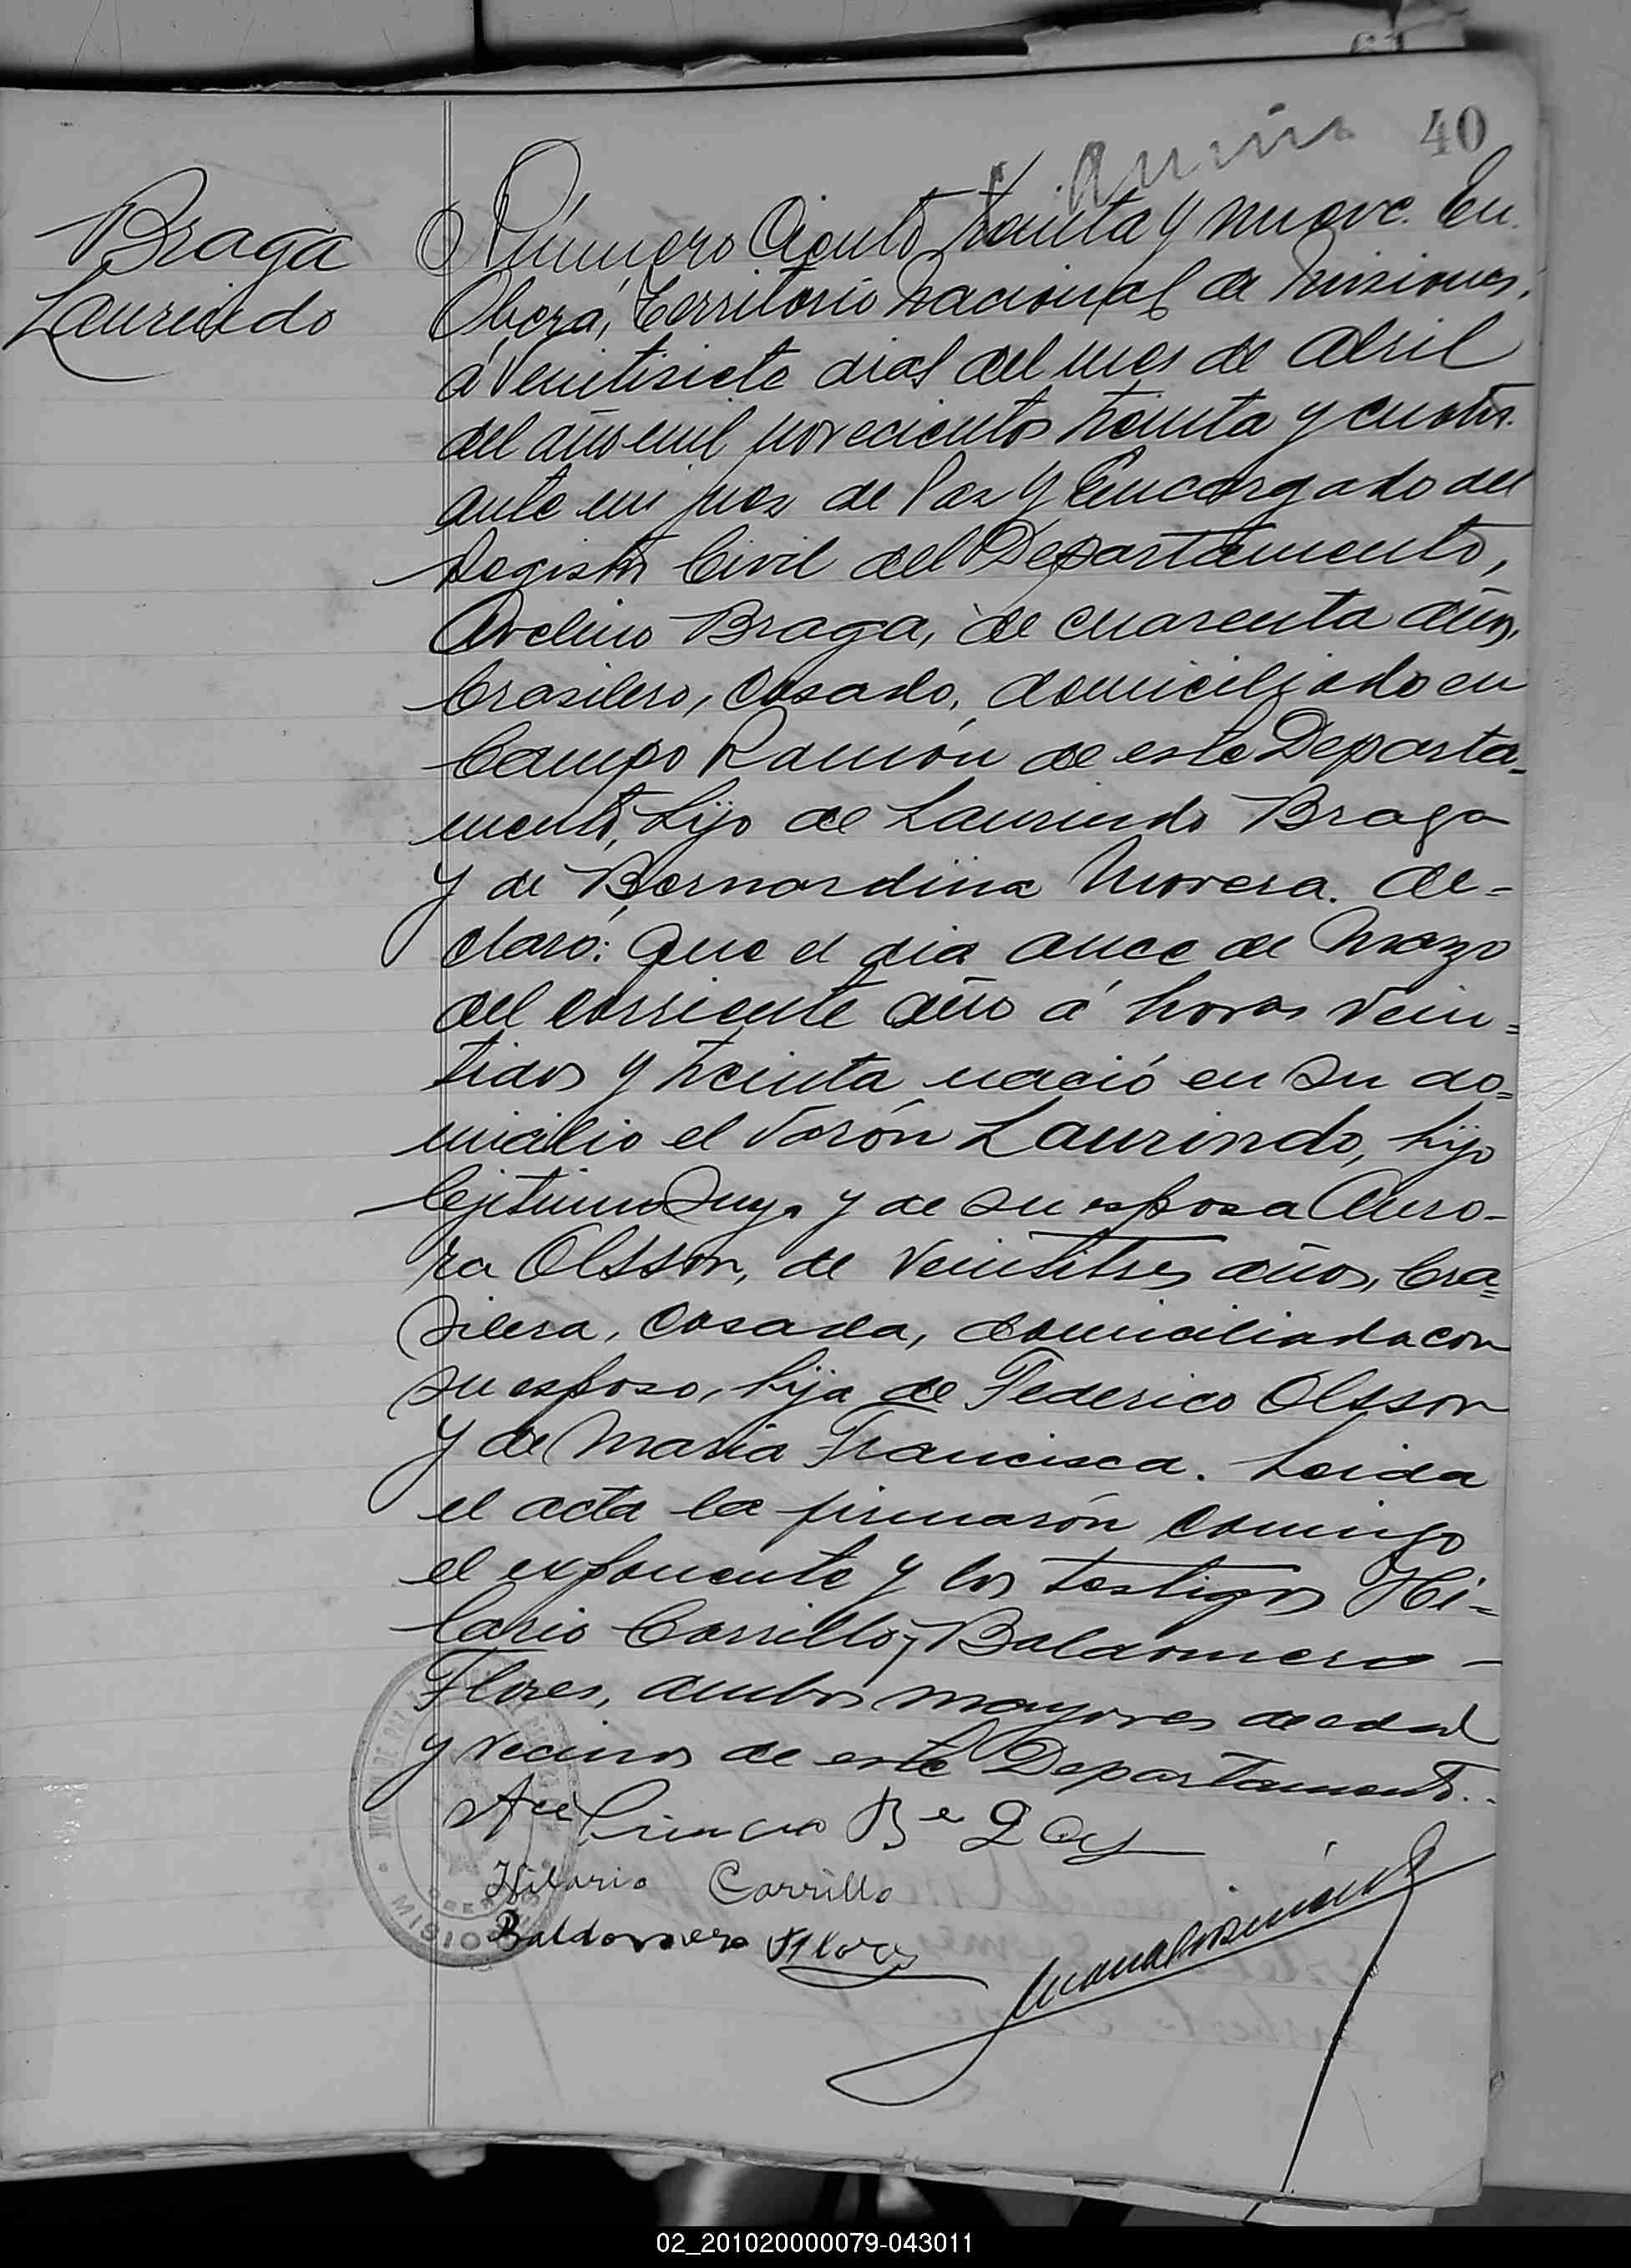 40
Braga
Laurindo
Número Ciento treinta y nueve. En
Oberá, Territorio Nacional de Misiones,
á veintisiete dias del mes de Abril
del año mil novecientos treinta y cuatro.
ante mi Juez de Paz y Encargado del
Registro Civil del Departamento,
Avelino Braga, de cuarenta años,
brasilero, casado, domiciliado en
Campo Ramón de este Departa-
mento, hijo de Laurindo Braga
y de Bernardina Morera. de-
claró: Que el dia once de Marzo
del corriente año á horas vein=
tidos y treinta nació en su do=
micilio el varón Laurindo, hijo
lejitimo suyo y de su esposa Auro-
ra Olsson, de veintitres años, bra=
silera, casada, domiciliada con
su esposo, hija de Federico Olsson
y de Maria Francisca. Leida
el acta la firmarón conmigo
el exponente y los testigos Hi=
lario Carrillo y Baldomero -
Flores, ambos mayores de edad
y vecinos de este Departamento.
Hilario Carrillo
Baldomero Flores
MISIONES
02_201020000079-043011